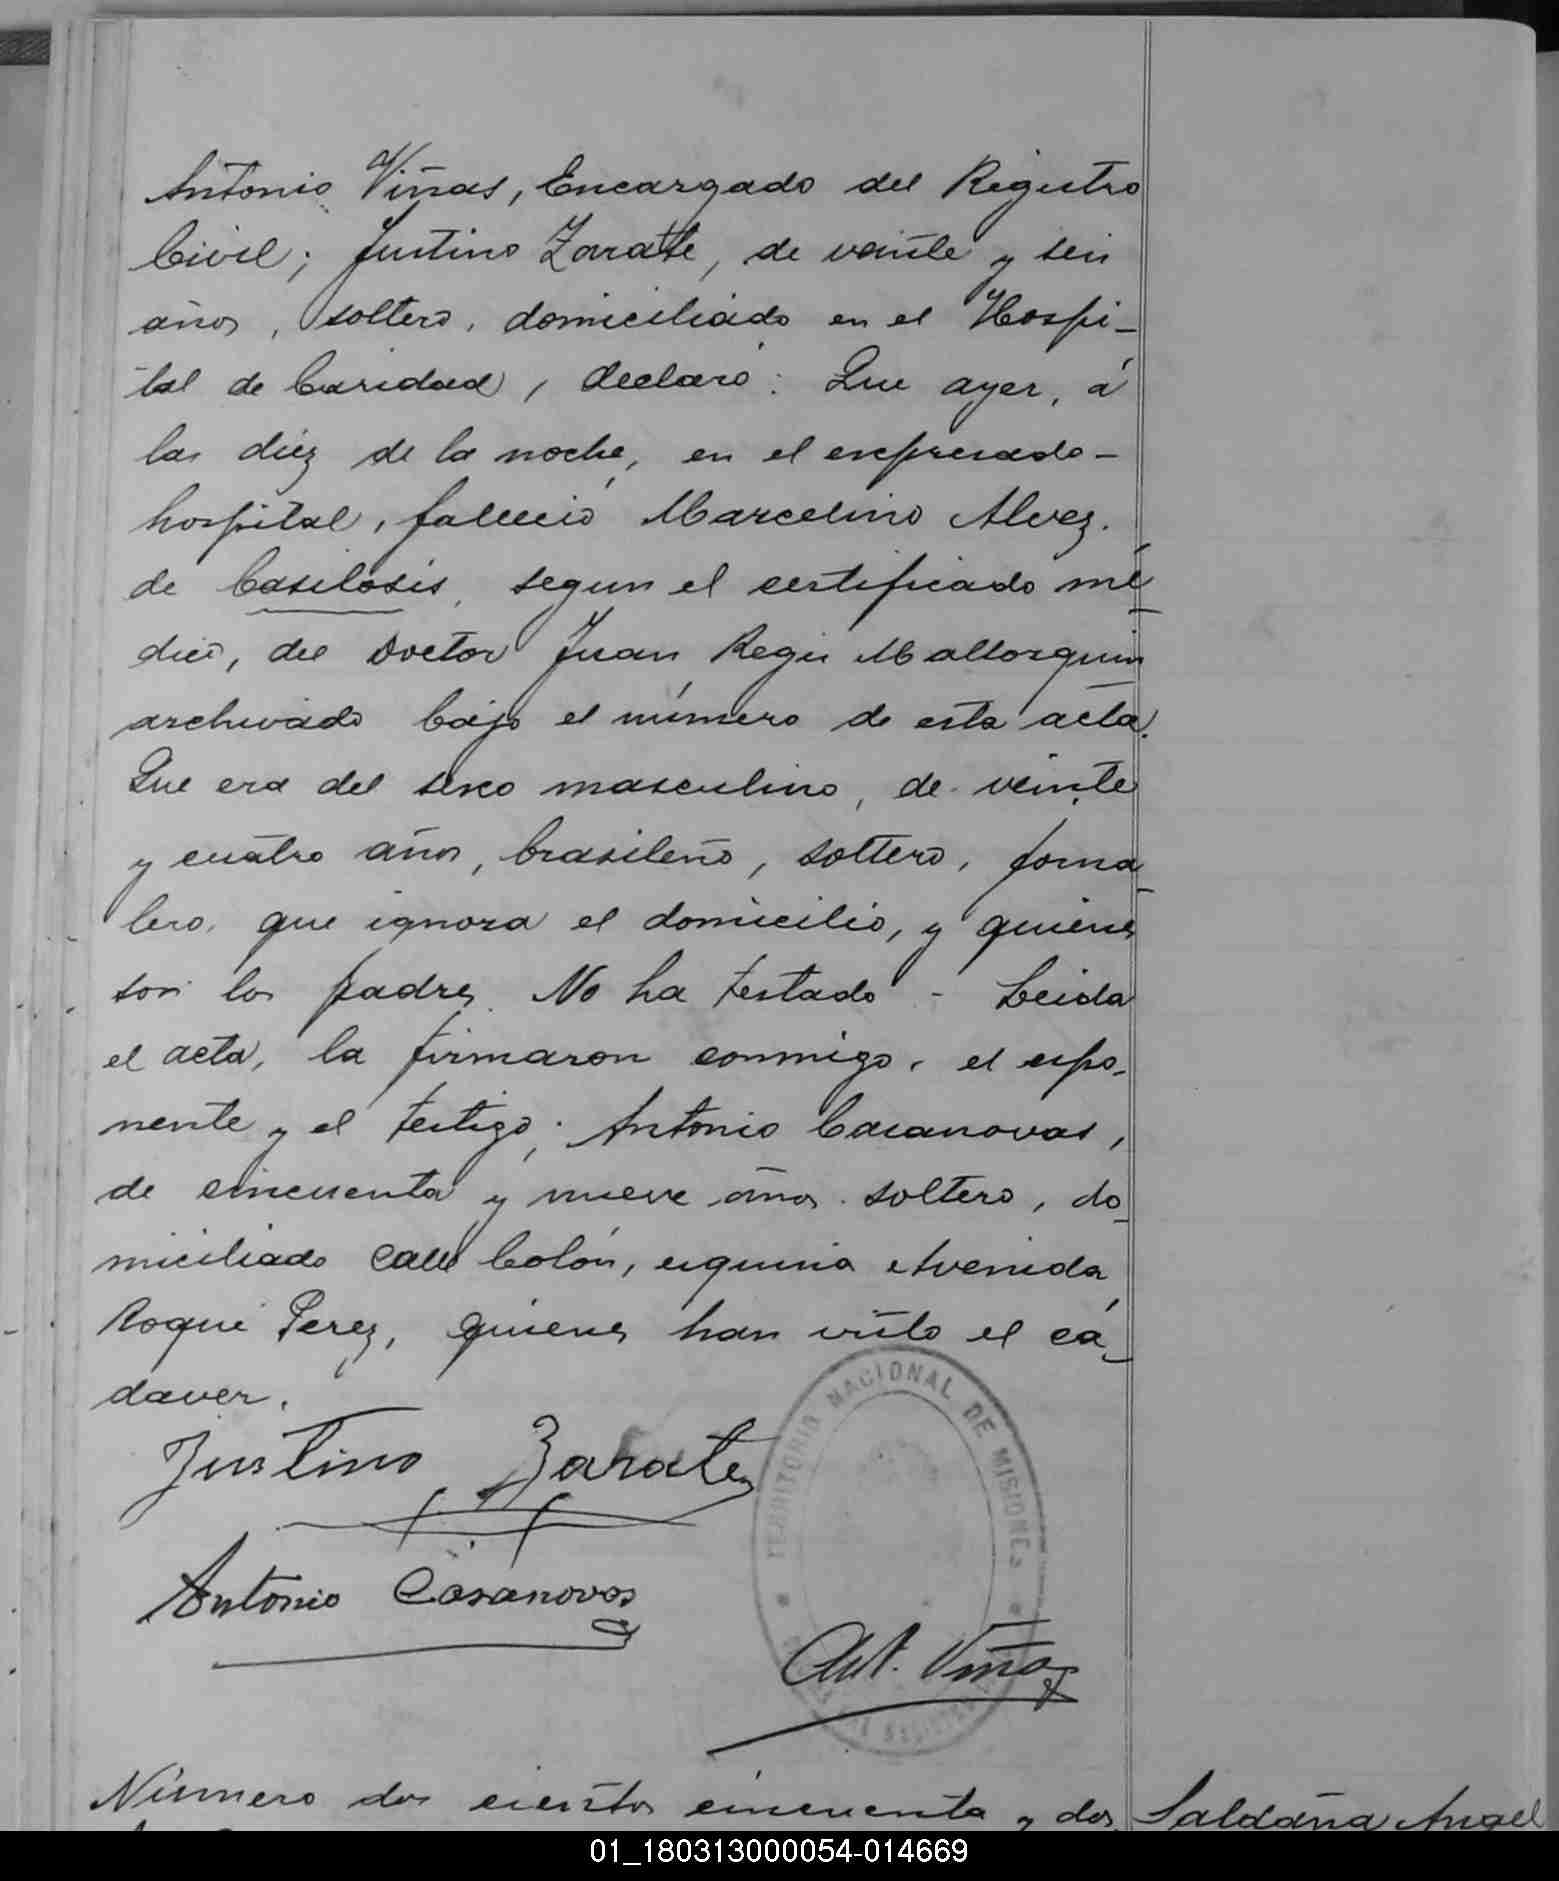 Antonio Viñas, Encargado del Registro
Civil; Justino Zarate, de veinte y seis
años, soltero, domiciliado en el Hospi-
tal de Caridad, declaró: Que ayer, á
las diez de la noche, en el expresado-
hospital, falleció Marcelino Alvez.
de Basilosis, segun el certificado mé-
dico, del Doctor Juan Regis Mallorquin
archivado bajo el número de esta acta.
Que era del sexo masculino, de veinte
y cuatro años, brasileño, soltero, jorna-
lero, que ignora el domicilio, y quienes
son los padres. No ha testado - Leida
el acta, la firmaron conmigo, el expo-
nente y el testigo; Antonio Casanovas,
de cincuenta y nueve años soltero, do-
miciliado calle Colón, esquina Avenida
Roque Perez, quienes han visto el cá-
daver.
Justino Zarate
Antonio Casanovas
TERRITORIO NACIONAL DE MISIONES
Ant. Viñas
Número dos cientos cincuenta y dos
Saldaña Angel
01_180313000054-014669